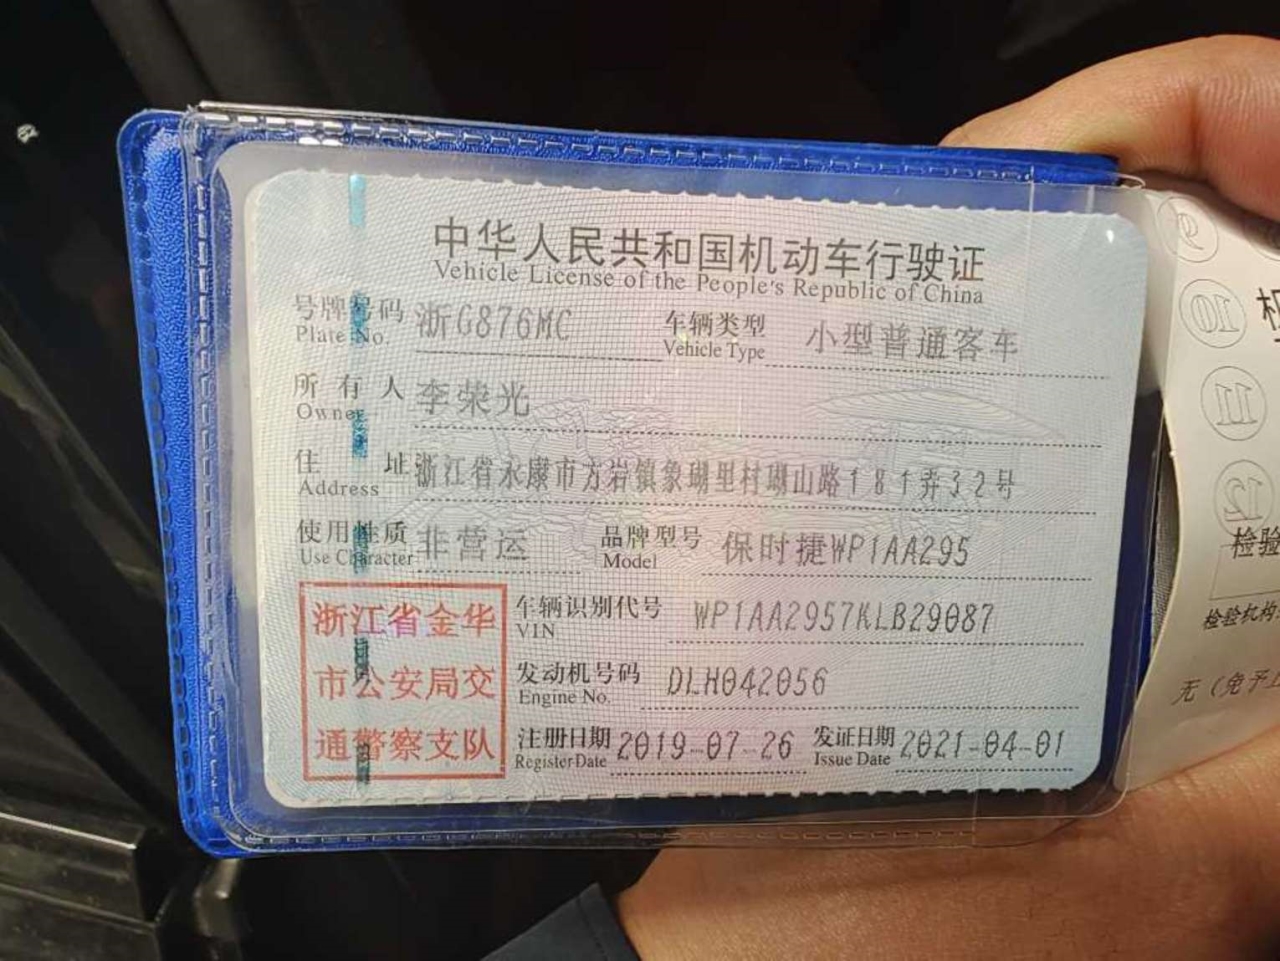 中华人民共和国机动车行驶证
Vehicle License of the People's Republic of China
号牌号码 浙G876MC 车辆类型 小型普通客车
Plate No. Vehicle Type
所有人 李荣光
Owner
住址 浙江省永康市方岩镇象瑚里村瑚山路181弄32号
Address
使用性质 非营运 品牌型号 保时捷WP1AA295
Use Character Model
浙江省金华
市公安局交
通警察支队
车辆识别代号 WP1AA2957KLB29087
VIN
发动机号码 DLH042056
Engine No.
注册日期 2019-07-26 发证日期 2021-04-01
Register Date Issue Date
9
10
11
12
检验
检验机构
无（免予上